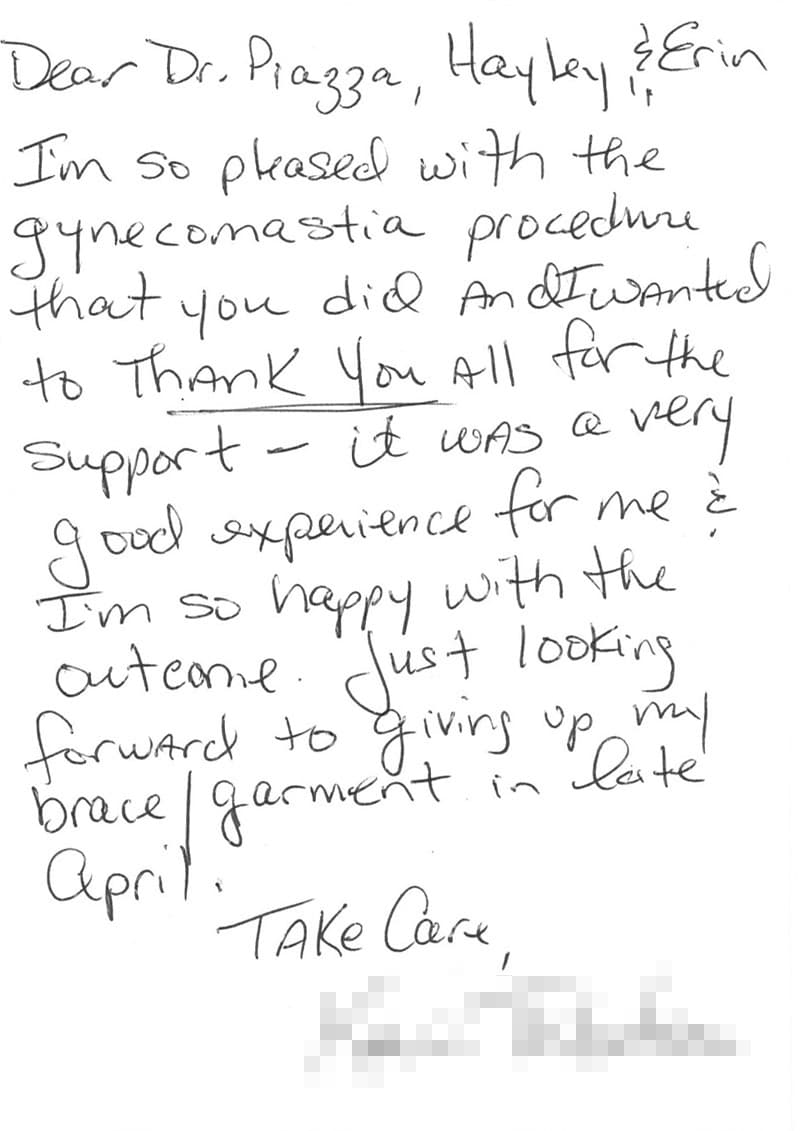 Dear Dr. Piazza, Hayley & Erin
I'm so pleased with the
gynecomastia procedure
that you did And I wanted
to THANK You All for the
support - it was a very
good experience for me &
I'm so happy with the
outcome. Just looking
forward to giving up my
brace/garment in late
April.
Take Care,